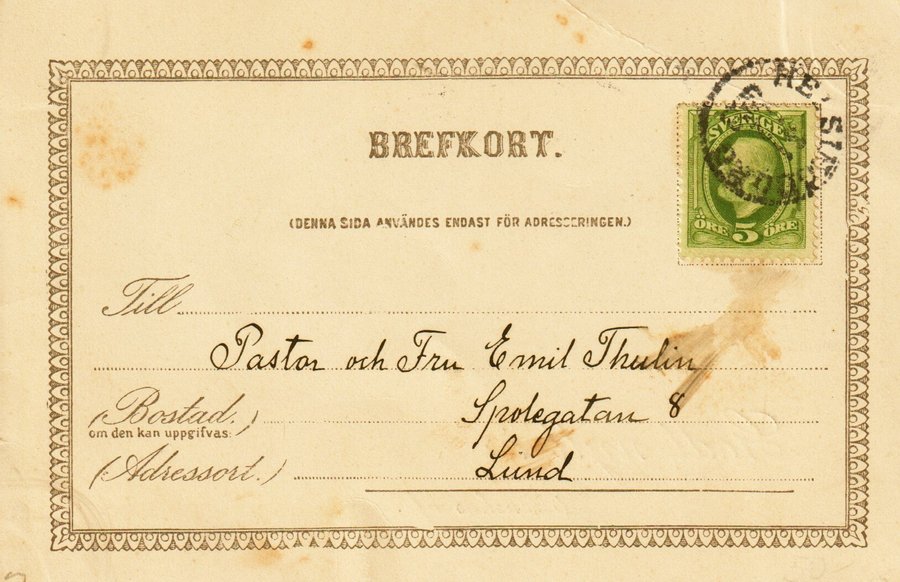 BREFKORT.
(DENNA SIDA ANVÄNDES ENDAST FÖR ADRESSERINGEN.)
SVERIGE
ÖRE 5 ÖRE
Till
Pastor och Fru Emil Thulin
(Bostad.)
Spolegatan 8
om den kan uppgifvas.
(Adressort.)
Lund